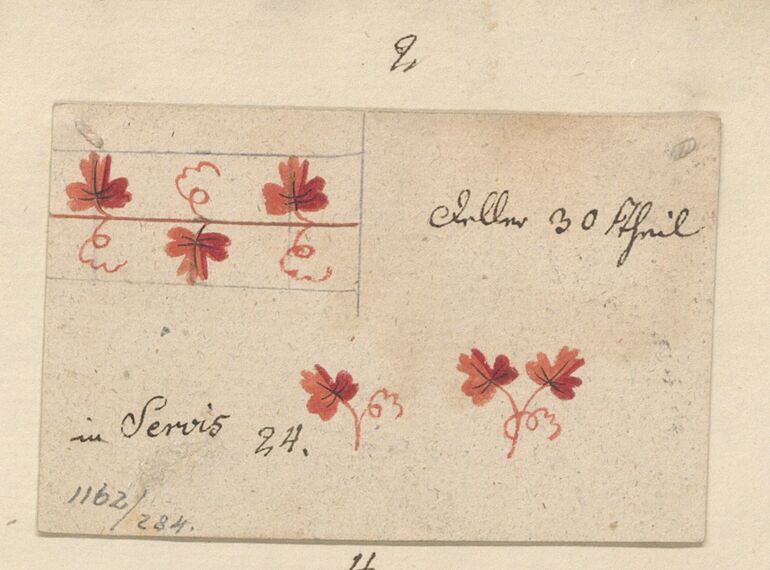 2
Teller 30 Theil
in Servis 24.
1162/284.
4